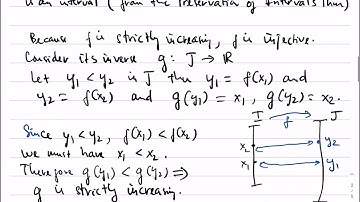 is an interval (from the Preservation of Intervals Thm)
Because f is strictly increasing, f is injective.
Consider its inverse g: J → ℝ
Let y₁ < y₂ in J then y₁ = f(x₁) and
y₂ = f(x₂) and g(y₁) = x₁, g(y₂) = x₂.
Since y₁ < y₂, f(x₁) < f(x₂)
we must have x₁ < x₂.
Therefore g(y₁) < g(y₂) ⟹
g is strictly increasing.
I f J
x₂ y₂
x₁ y₁